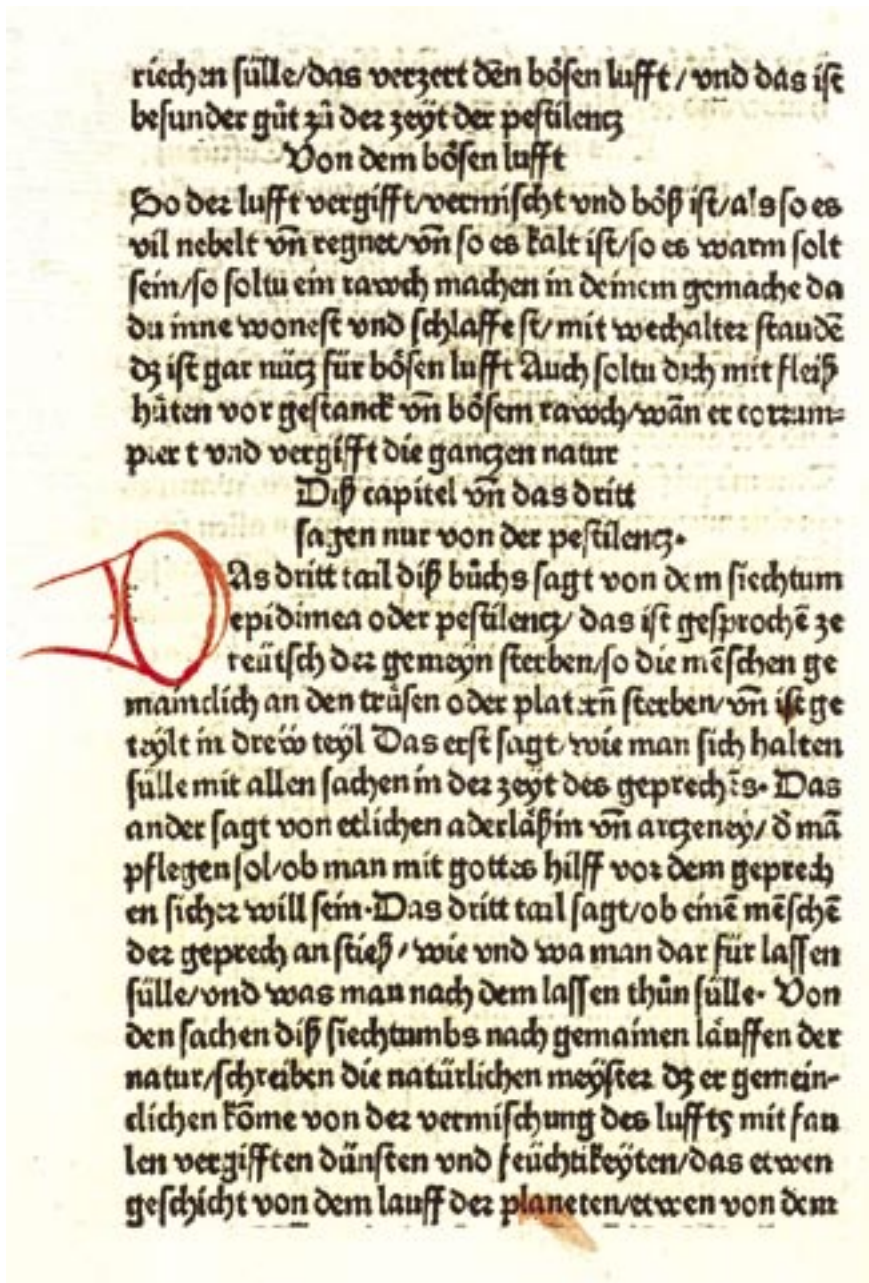 riechen sülle/das verzert den bősen lufft/vnd das ist
besunder gůt zů der zeÿt der pestilentz
Von dem bősen lufft
So der lufft vergifft/vermischt vnd böß ist/als so es
vil nebelt vn̄ regnet/vn̄ so es kalt ist/so es warm solt
sein/so soltu ein rawch machen in deinem gemache da
du inne wonest vnd schlaffest/mit wechalter staudē
dz ist gar nütz für bősen lufft Auch soltu dich mit fleiß
hůten vor gestanck vn̄ bősem rawch/wān er corrum⸗
piert vnd vergifft die gantzen natur
Diß capitel vn̄ das dritt
sagen nur von der pestilentz.
DAs dritt tail diß bůchs sagt von dem siechtum
epidimea oder pestilentz/das ist gesprochē ze
teütsch der gemeÿn sterben/so die mēschen ge
mainclich an den trůsen oder platern̄ sterben/vn̄ ist ge
teÿlt in drew teÿl Das erst sagt/wie man sich halten
sülle mit allen sachen in der zeÿt des geprechēs. Das
ander sagt von etlichen aderläßin vn̄ artzeney/ď mā
pflegen sol/ob man mit gottes hilff vor dem geprech
en sicher will sein.Das dritt tail sagt/ob einē mēschē
der geprech an stieß/wie vnd wa man dar für lassen
sülle/vnd was man nach dem lassen thůn sülle. Von
den sachen diß siechtumbs nach gemainen läuffen der
natur/schreiben die natürlichen meÿster dz er gemein-
clichen kōme von der vermischung des luffts mit fau
len vergifften dünsten vnd feüchtikeÿten/das etwen
geschicht von dem lauff der planeten/etwen von dem